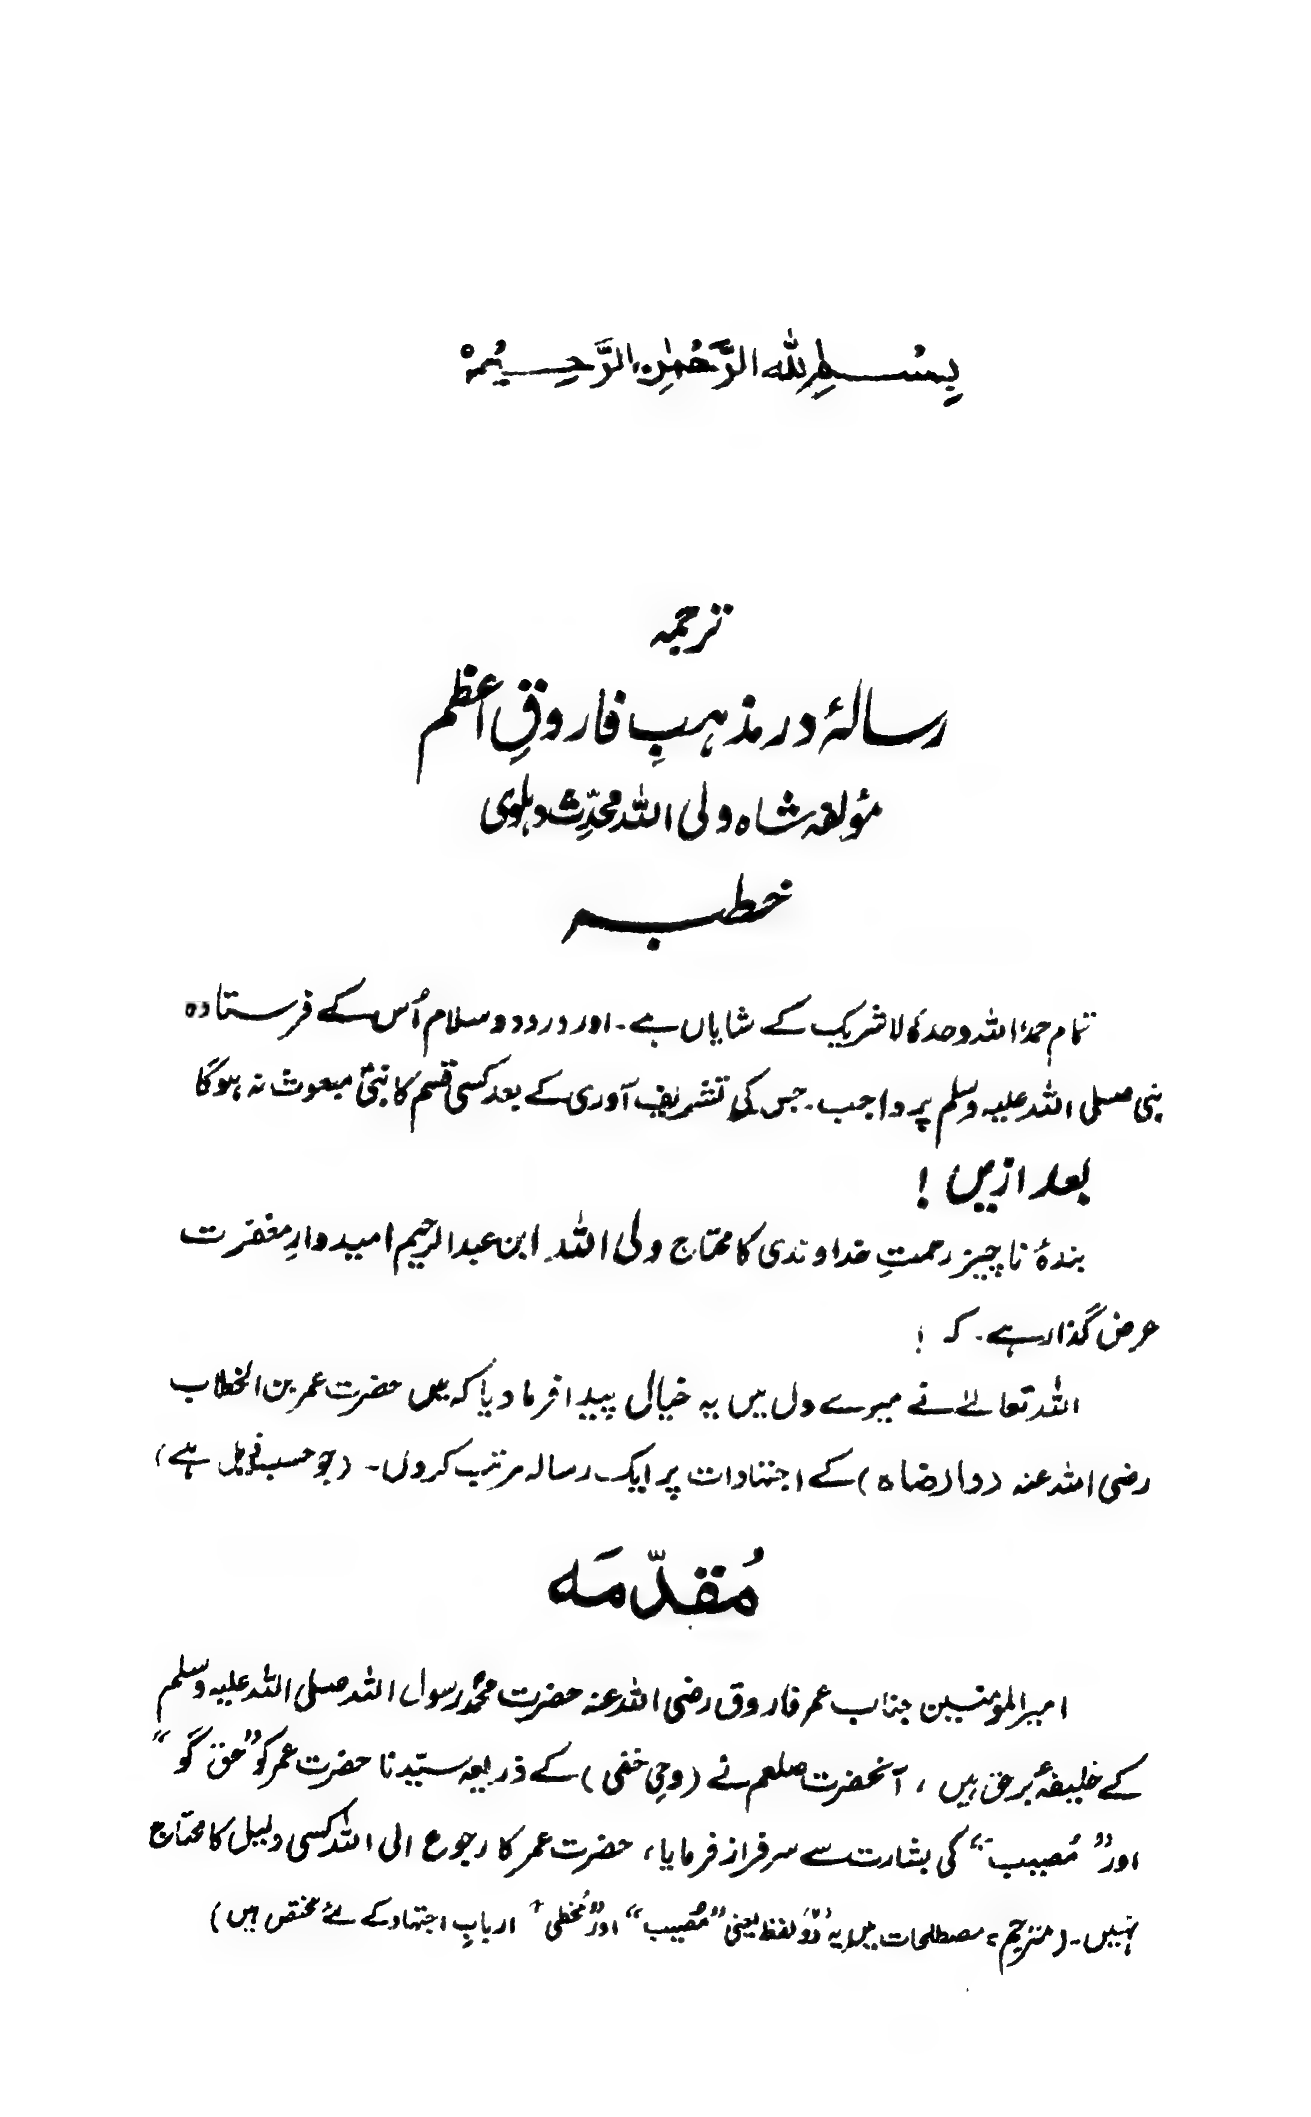 بِسْمِ اللهِ الرَّحْمٰنِ الرَّحِيْمِ
ترجمہ
رسالۂ در مذہبِ فاروقِ اعظم
مؤلفہ شاہ ولی اللہ محدّث دہلوی
خطبہ
تمام حمد اللہ وحدہٗ لا شریک کے شایاں ہے۔ اور درود و سلام اُس کے فرستادہ
نبی صلی اللہ علیہ وسلم پر واجب۔ جس کی تشریف آوری کے بعد کسی قسم کا نبیؐ مبعوث نہ ہوگا
بعد ازیں !
بندۂ ناچیز رحمتِ خداوندی کا محتاج ولی اللہ ابن عبدالرحیم امیدوارِ مغفرت
عرض گذار ہے۔ کہ !
اللہ تعالےٰ نے میرے دل میں یہ خیال پیدا فرما دیا کہ میں حضرت عمر بن الخطاب
رضی اللہ عنہ (وارضاہ) کے اجتہادات پر ایک رسالہ مرتب کردوں۔ (جو حسب ذیل ہے)
مُقدّمَہ
امیرالمومنین جناب عمر فاروق رضی اللہ عنہ حضرت محمدؐ رسول اللہ صلی اللہ علیہ وسلم
کے خلیفۂ برحق ہیں ، آنحضرت صلعم نے (وحیِ خفی) کے ذریعہ سیّدنا حضرت عمر کو ”حق گو“
اور ”مُصیب“ کی بشارت سے سرفراز فرمایا، حضرت عمر کا رجوع الی اللہ کسی دلیل کا محتاج
نہیں۔ (مترجم : مصطلحات میں یہ دوؔ لفظ یعنی ”مُصیب“ اور ”مُخطی“ اربابِ اجتہاد کے لئے مختص ہیں)